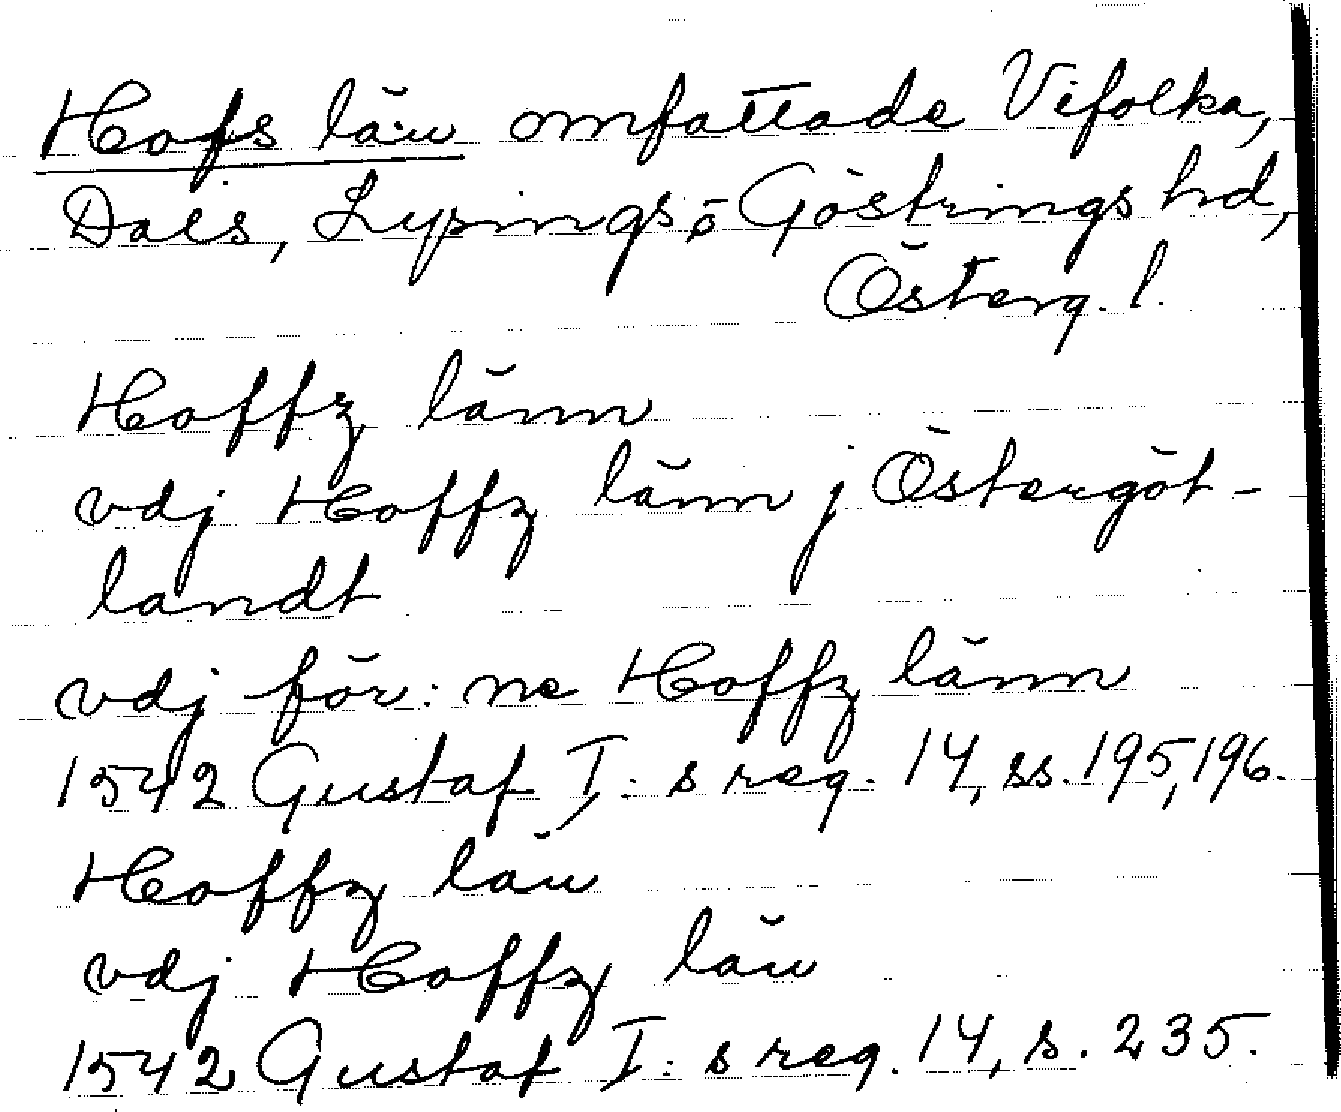 Hofs län omfattade Vifolka,
Dals, Lysings o Göstrings hd,
Österg. l.
Hoffz länn
vdj Hoffz länn j Östergöt-
landt
vdj för: ne Hoffz länn
1542 Gustaf I: s reg. 14, ss. 195, 196.
Hoffz län
vdj Hoffz län
1542 Gustaf I: s reg. 14, s. 235.